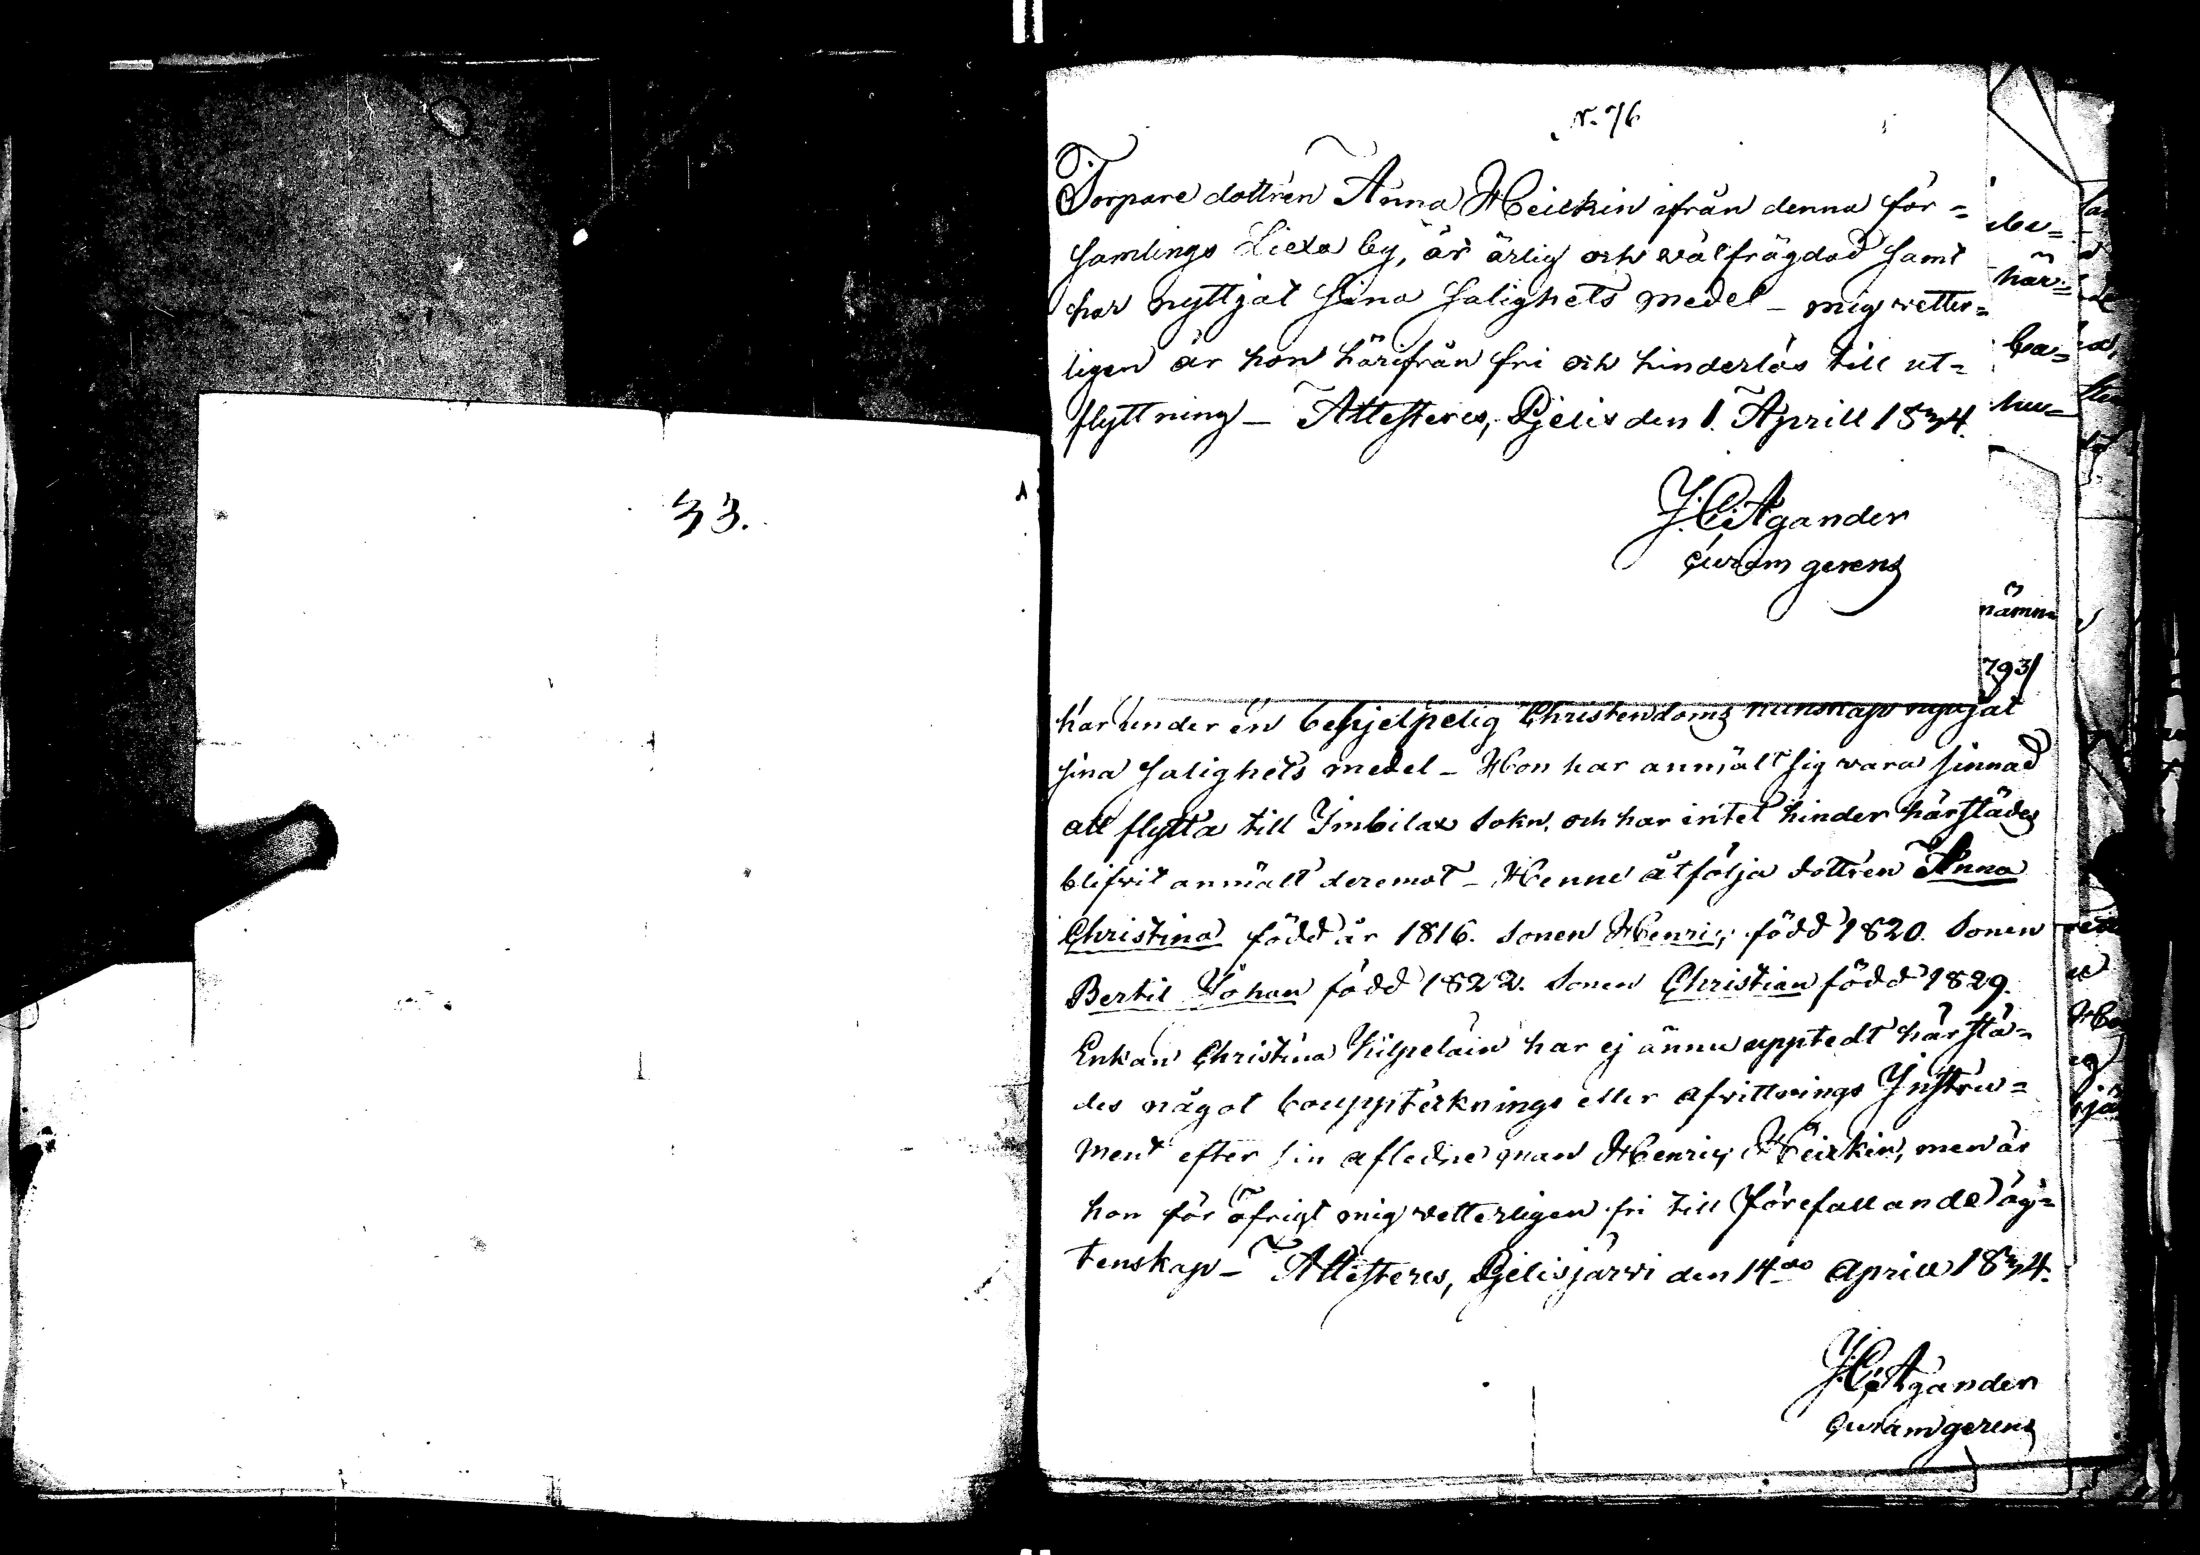 33.
N. 76
Torpare dottren Anna Heickin ifrån denna för=
samlings Liexa by, är ärlig och välfrägdad samt
har nyttjat sina salighets medel - mig vetter=
ligen är hon härifrån fri och hinderlös till ut=
flyttning - Attesteres, Pjelis den 1. Aprill 1834.
J. C. Agander
curam gerens
här=
nämn=
793/
har under en behjelpelig Christendoms kunskap nyttjat
sina salighets medel - Hon har anmält sig vara sinnad
att flytta till Imbilax Sokn, och har intet hinder härstädes
blifvit anmält deremot - Henne åtfölja dottren Anna
Christina född år 1816. Sonen Henric, född 1820. Sonen
Bertil Johan född 1822. Sonen Christian född 1829.
Enkan Christina Kilpeläin har ej ännu upptedt härstä=
des något bouppteknings eller afvittrings Instru=
ment efter sin afledne man Henric Heickin, men är
hon för öfrigt mig vetterligen fri till förefallande äg=
tenskap - Attesteres, Pjelisjärvi den 14de April 1834.
J. C. Agander
curam gerens